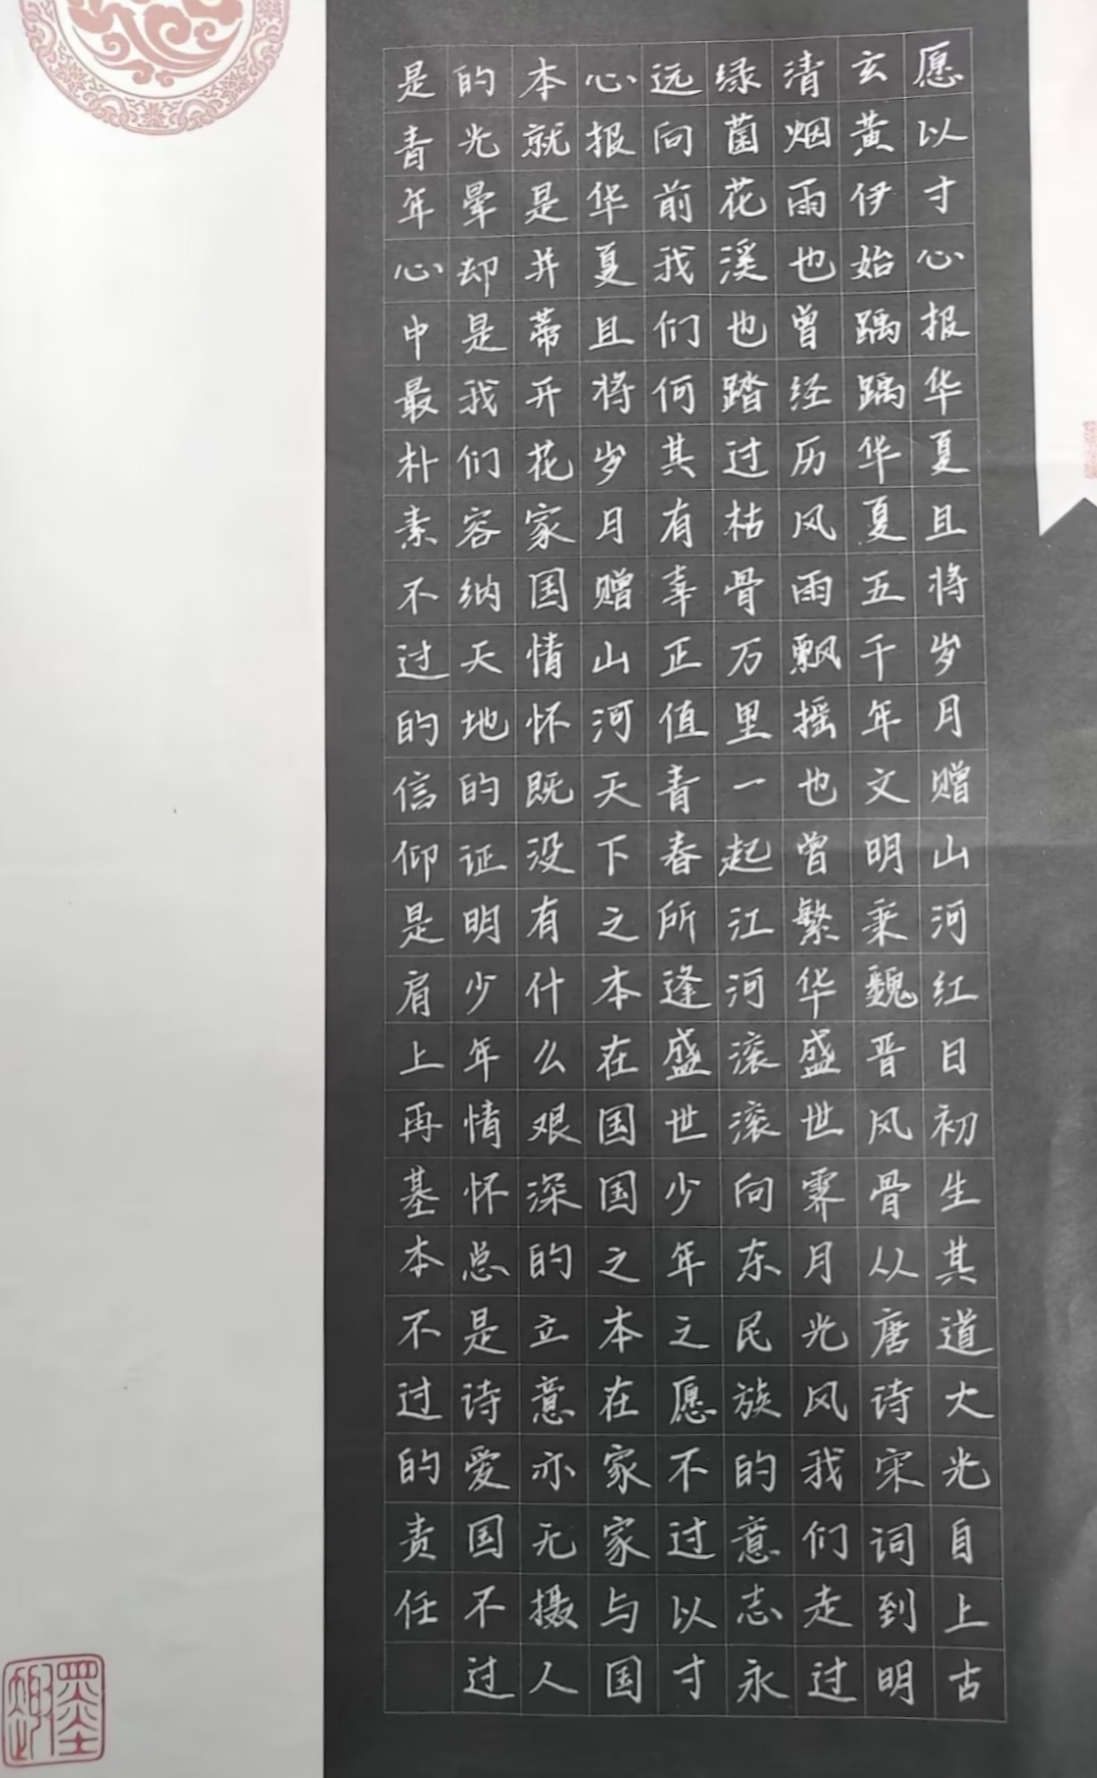 愿以寸心报华夏且将岁月赠山河红日初生其道大光自上古
玄黄伊始踽踽华夏五千年文明乘魏晋风骨从唐诗宋词到明
清烟雨也曾经历风雨飘摇也曾繁华盛世霁月光风我们走过
绿菌花溪也踏过枯骨万里一起江河滚滚向东民族的意志永
远向前我们何其有幸正值青春所逢盛世少年之愿不过以寸
心报华夏且将岁月赠山河天下之本在国国之本在家家与国
本就是并蒂开花家国情怀既没有什么艰深的立意亦无摄人
的光晕却是我们容纳天地的证明少年情怀总是诗爱国不过
是青年心中最朴素不过的信仰是肩上再基本不过的责任
墨趣